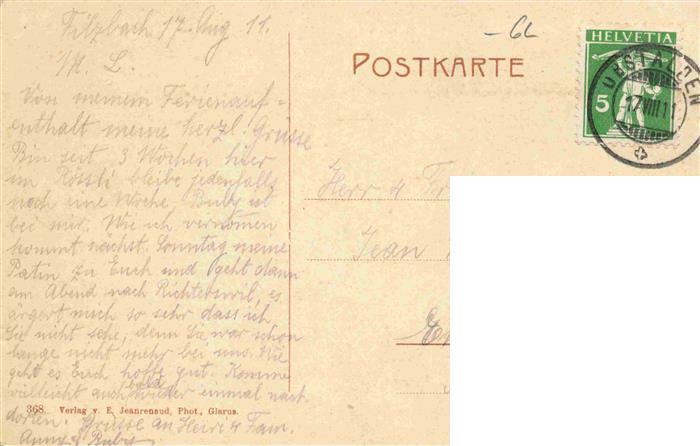 Filzbach 17. Aug 11.
M. L.
Von meinem Ferienauf-
enthalt meine herzl. Grüsse
Bin seit 3 Wochen hier
im Rössli bleibe jedenfalls
noch eine Woche. Buby ist
bei mir. Wie ich vernomen
kommt nächst. Sonntag meine
Patin zu Euch und geht dann
am Abend nach Richterswil, es
ärgert mich so sehr dass ich
Sie nicht sehe, denn Sie war schon
lange nicht mehr bei uns. Wie
geht es Euch hoffe gut. Komme
vielleicht auch bald wieder einmal nach
dorten. Grüsse an Heiri & Fam.
Anny & Buby
368. Verlag v. E. Jeanrenaud, Phot., Glarus.
POSTKARTE
HELVETIA
5
OBSTALDEN
17.VIII.11
Herr & Fr
Jean